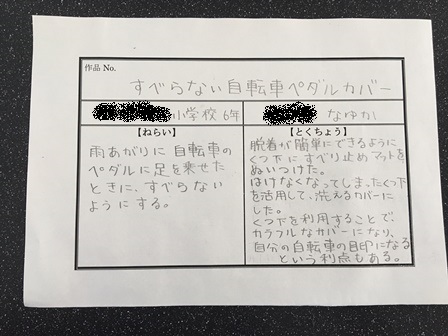 作品 No.
すべらない自転車ペダルカバー
小学校 6年
なゆか
【ねらい】
雨あがりに自転車の
ペダルに足を乗せた
ときに、すべらない
ようにする。
【とくちょう】
脱着が簡単にできるように
くつ下にすべり止めマットを
ぬいつけた。
はけなくなってしまったくつ下
を活用して、洗えるカバーに
した。
くつ下を利用することで
カラフルなカバーになり、
自分の自転車の目印になる
という利点もある。